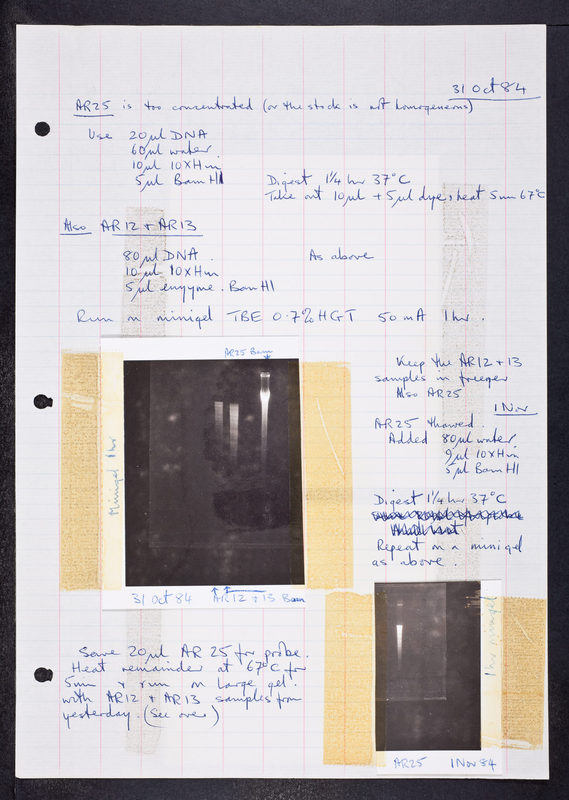 31 Oct 84
AR25 is too concentrated (or the stock is not homogeneous)
Use 20µl DNA
60µl water
10µl 10xHin
5µl Bam H1
Digest 1¼ hr 37°C
Take out 10µl + 5µl dye, heat 5min 67°C
Also AR12 + AR13
80µl DNA.
10µl 10xHin
5µl enzyme. Bam H1
As above
Run on minigel TBE 0.7% HGT 50mA 1hr.
AR25 Bam
Minigel 1hr
31 Oct 84 AR12 + 13 Bam
Keep the AR12 + 13
samples in freezer
Also AR25
1 Nov
AR25 thawed.
Added 80µl water
9µl 10xHin
5µl Bam H1
Digest 1¼ hr 37°C
Repeat on a minigel
as above.
1hr minigel
AR25 1 Nov 84
Save 20µl AR25 for probe.
Heat remainder at 67°C for
5min & run on large gel.
with AR12 + AR13 samples from
yesterday. (See over)